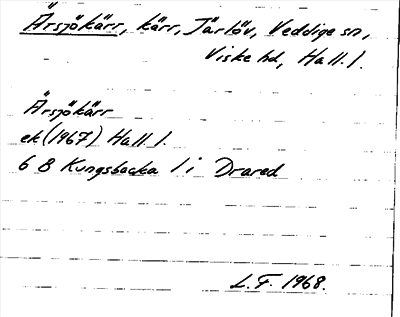 Ärsjökärr, kärr, Järlöv, Veddige sn,
Viske hd, Hall. l.
Ärsjökärr
ek (1967) Hall. l.
6 B Kungsbacka 1 i Drared
L. F. 1968.